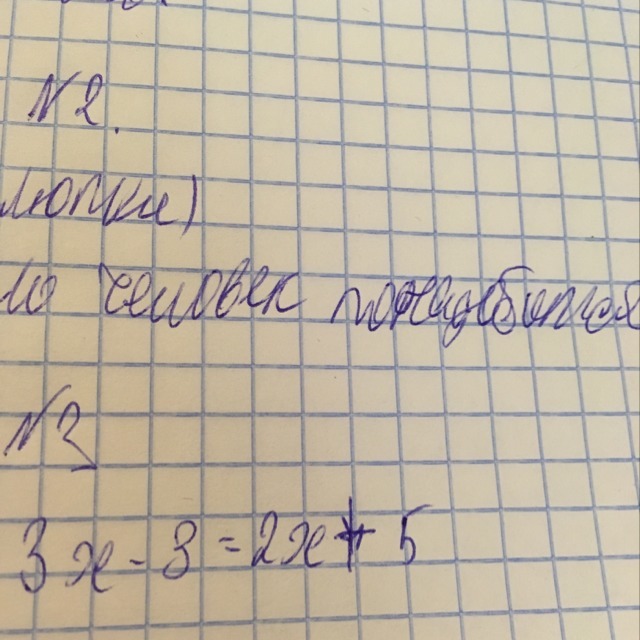 №2.
лопки)
ло человек понадобится
№3
3x - 3 = 2x + 5